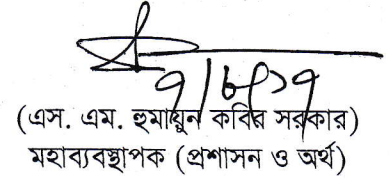 ৭/৮/১৭
(এস. এম. হুমায়ুন কবির সরকার)
মহাব্যবস্থাপক (প্রশাসন ও অর্থ)